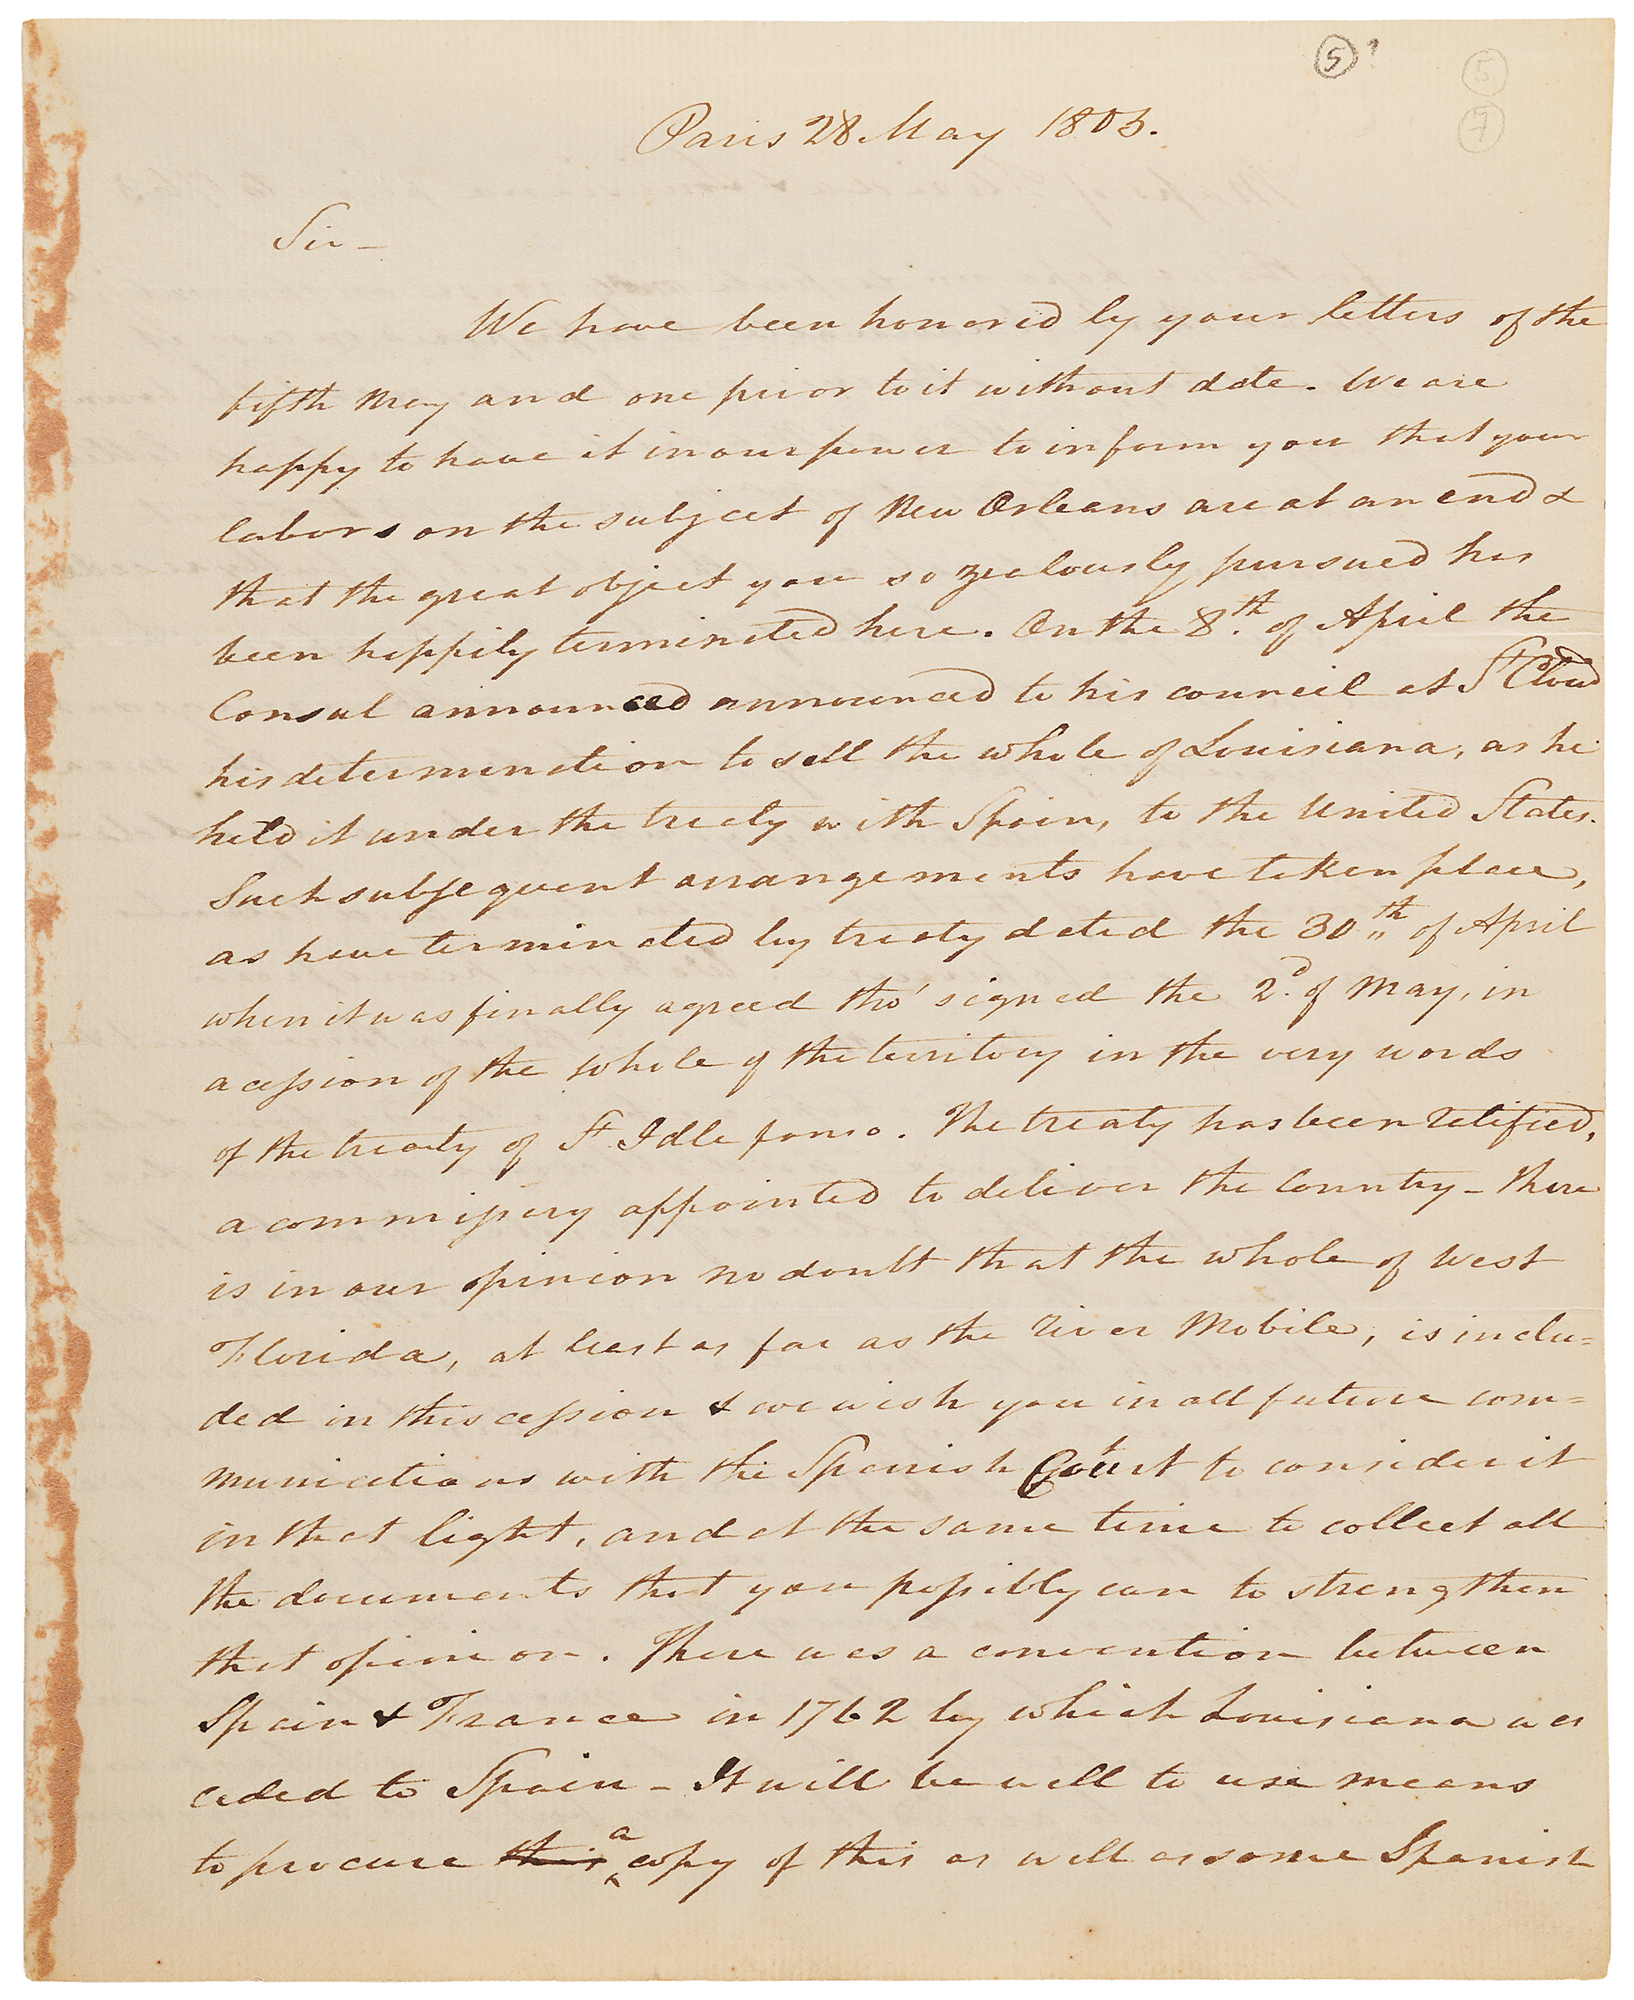 5 ?
5
7
Paris 28 May 1803.
Sir —
We have been honored by your letters of the
fifth May and one prior to it without date. We are
happy to have it in our power to inform you that your
labors on the subject of New Orleans are at an end &
that the great object you so zealously pursued has
been happily terminated here. On the 8.th of April the
Consul announced announced to his council at St Cloud
his determination to sell the whole of Louisiana, as he
held it under the treaty with Spain, to the United States.
Such subsequent arrangements have taken place,
as have terminated by treaty dated the 30th of April
when it was finally agreed tho' signed the 2.d of May, in
a cession of the whole of the territory in the very words
of the treaty of St Idlefonso. The treaty has been retified,
a commissary appointed to deliver the Country – there
is in our opinion no doubt that the whole of West
Florida, at least as far as the river Mobile, is inclu=
ded in this cession & we wish you in all future com=
munications with the Spanish Court to consider it
in that light, and at the same time to collect all
the documents that you possibly can to strengthen
that opinion. There was a convention between
Spain & France in 1762 by which Louisiana was
ceded to Spain – It will be well to use means
to procure this a copy of this as well as some Spanish